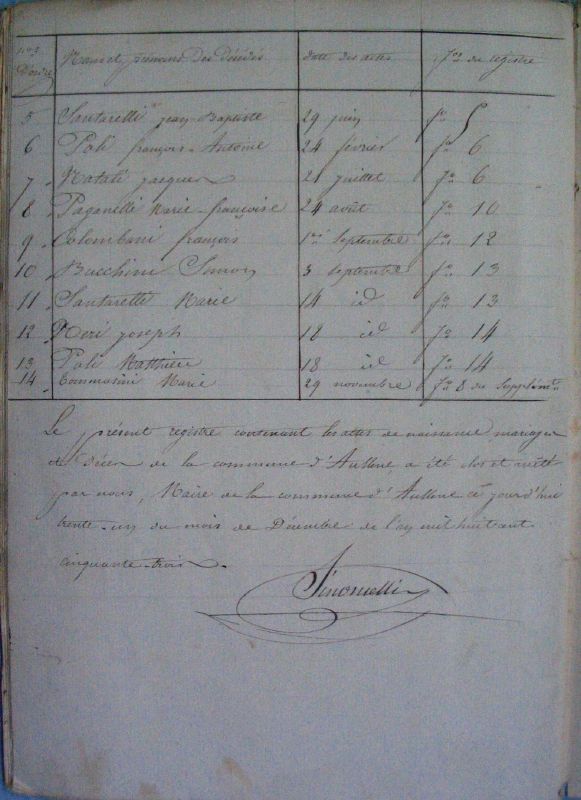 nos D'ordre Noms et prénoms Des Décédés date des actes fo du registre
5 Santarelli jean-Baptiste 29 juin fo 5
6 Poli françois-Antoine 24 février fo 6
7 Natali jacques 21 juillet fo 6
8 Paganelli Marie-françoise 24 août fo 10
9 Colombani françois 1er septembre fo 12
10 Bacchini Simon 3 septembre fo 13
11 Santarelli Marie 14 id fo 13
12 Neri joseph 18 id fo 14
13 Poli Matthieu 18 id fo 14
14 Tommasini Marie 29 novembre fo 8 du Supplémre
Le présent registre contenant les actes de naissance mariages
et décès de la commune d'Aullene a été clos et arrêté
par nous, Maire de la commune d'Aullene ce jour d'hui
trente-un du mois de Décembre de l'an mil huit cent
cinquante-trois.
Simonetti